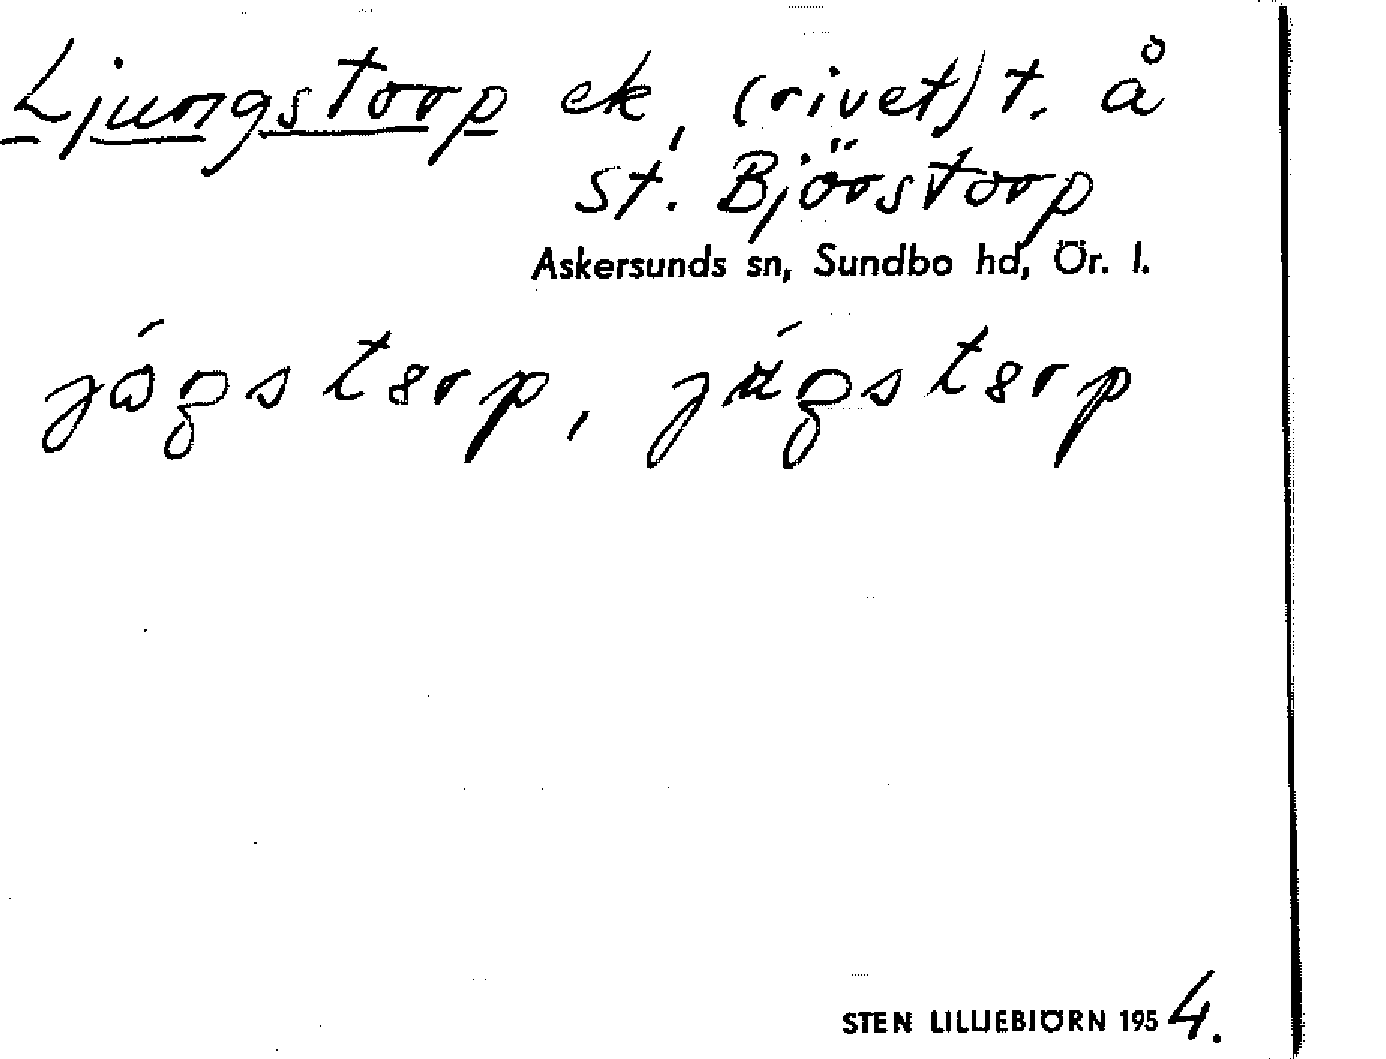 Ljungstorp ek, (rivet) t. å
st. Björstorp
Askersunds sn, Sundbo hd, Ör. l.
STEN LILLIEBIÖRN 1954.